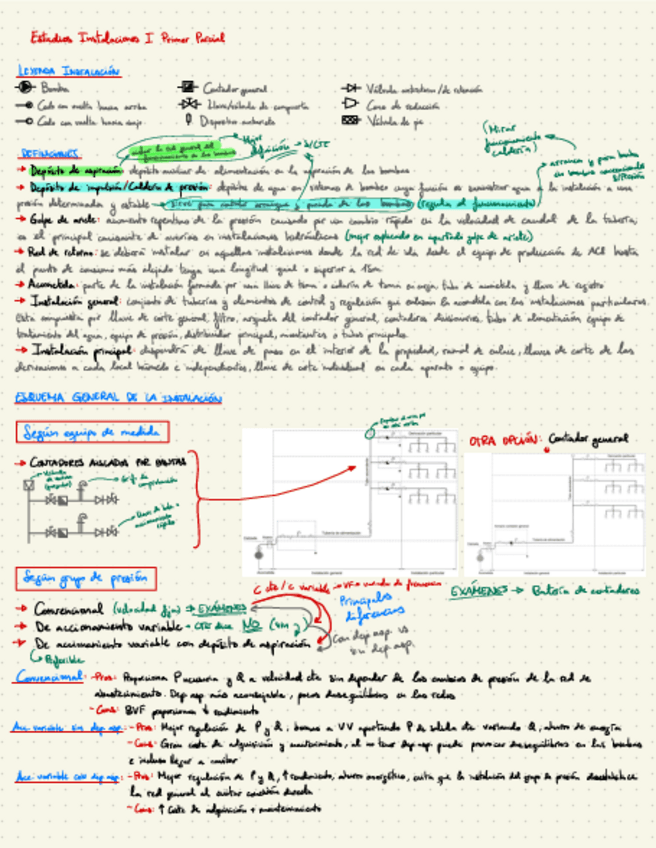 Estudios Instalaciones I Primer Parcial
LEYENDA INSTALACIÓN
Bomba
Contador general
Válvula antirretorno/de retención
Codo con vuelta hacia arriba
Llave/válvula de compuerta
Cono de reducción
Codo con vuelta hacia abajo
Dispositivo antiariete
Válvula de pie
(Mirar funcionamiento calderín)
DEFINICIONES
Mejor definición → s/CTE
→ Depósito de aspiración: depósito auxiliar de alimentación en la aspiración de las bombas
→ Depósito de impulsión/Calderín de presión: depósito de agua en sistemas de bombeo cuya función es suministrar agua a la instalación a una
presión determinada y estable → sirve para controlar arranque y parada de las bombas (regula el funcionamiento)
→ Golpe de ariete: aumento repentino de la presión causado por un cambio rápido en la velocidad de caudal de la tubería;
es el principal causante de averías en instalaciones hidráulicas (mejor explicado en apartado golpe de ariete)
→ Red de retorno: se deberá instalar en aquellas instalaciones donde la red de ida desde el equipo de producción de ACS hasta
el punto de consumo más alejado tenga una longitud igual o superior a 15m
→ Acometida: parte de la instalación formada por una llave de toma o collarín de toma en carga, tubo de acometida y llave de registro
→ Instalación general: conjunto de tuberías y elementos de control y regulación que enlazan la acometida con las instalaciones particulares.
Esta compuesta por llave de corte general, filtro, arqueta del contador general, contadores divisionarios, tubos de alimentación, equipo de
tratamiento del agua, equipo de presión, distribuidor principal, montantes o tubos principales.
→ Instalación principal: dispondrá de llave de paso en el interior de la propiedad, ramal de enlace, llaves de corte de las
derivaciones a cada local húmedo e independientes, llave de corte individual en cada aparato o equipo.
ESQUEMA GENERAL DE LA INSTALACIÓN
Según equipo de medida
OTRA OPCIÓN: Contador general
→ CONTADORES AISLADOS POR PLANTAS
Grifo de comprobación
Según grupo de presión
EXÁMENES → Batería de contadores
C cte / C variable → VF = variador de frecuencia
Principales diferencias
→ Convencional (velocidad fija) → EXÁMENES
→ De accionamiento variable - CTE dice NO
→ De accionamiento variable con depósito de aspiración
Con dep asp vs sin dep asp.
Preferible
Convencional: - Pros: Proporciona P necesaria y Q a velocidad cte sin depender de los cambios de presión de la red de
abastecimiento. Dep asp más aconsejable, pocos desequilibrios en las redes
- Cons: BVF proporciona ↓ rendimiento
Acc. variable sin dep asp: - Pros: Mejor regulación de P y Q; bombas a VV aportando P de salida cte variando Q, ahorro de energía
- Cons: Gran coste de adquisición y mantenimiento, al no tener dep asp puede provocar desequilibrios en las bombas
e incluso llegar a cavitar
Acc. variable con dep asp: - Pros: Mejor regulación de P y Q, ↑ rendimiento, ahorro energético, evita que la instalación del grupo de presión desestabilice
la red general al evitar conexión directa
- Cons: ↑ Coste de adquisición + mantenimiento